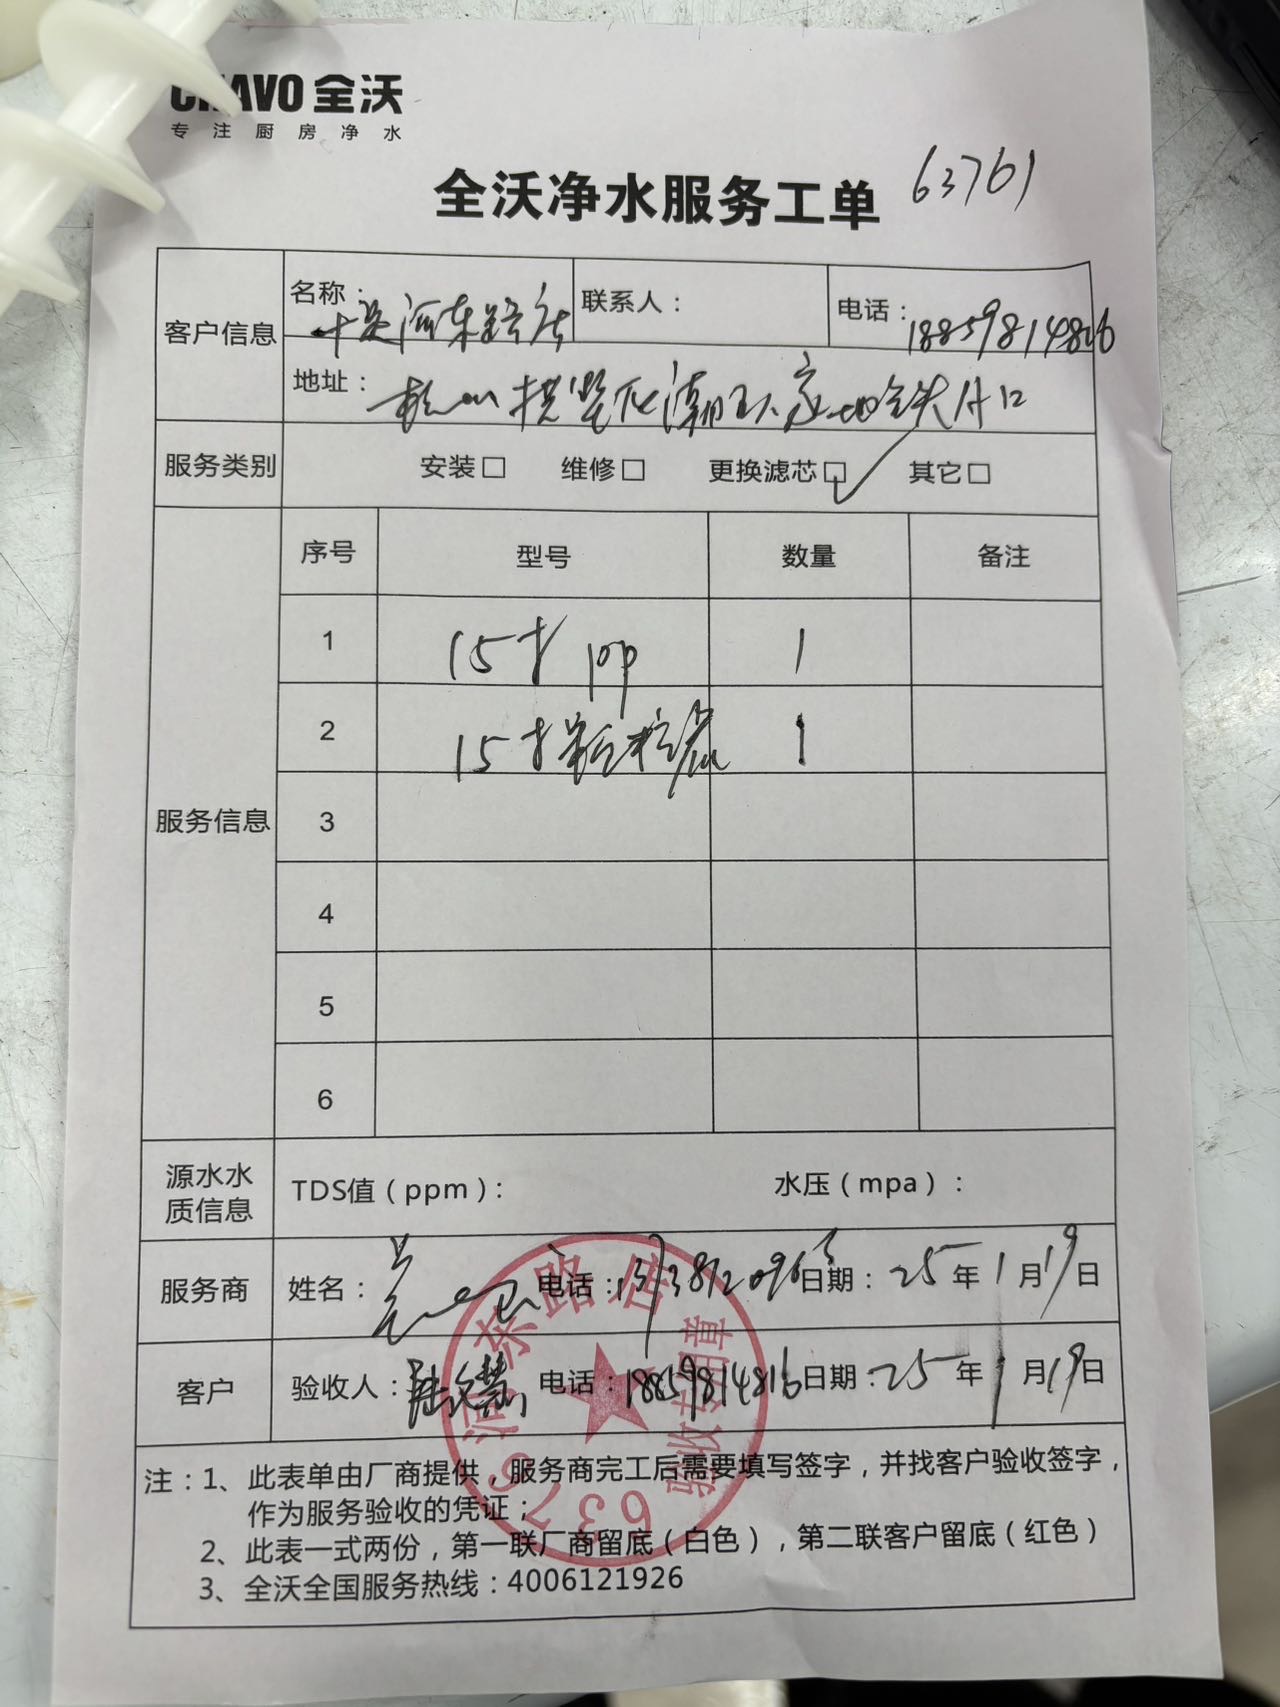 全沃
专注厨房净水
全沃净水服务工单 63761
客户信息 名称： 河东路店 联系人： 电话：18859814816
地址：
服务类别 安装□ 维修□ 更换滤芯□ 其它□
服务信息 序号 型号 数量 备注
1 15寸 pp 1
2 15寸 1
3
4
5
6
源水水质信息 TDS值（ppm）： 水压（mpa）：
服务商 姓名： 电话： 日期：25年1月19日
客户 验收人： 电话：18859814816 日期：25年1月19日
河东路店
验收专用章
63761
注：1、此表单由厂商提供，服务商完工后需要填写签字，并找客户验收签字，
作为服务验收的凭证；
2、此表一式两份，第一联厂商留底（白色），第二联客户留底（红色）
3、全沃全国服务热线：4006121926